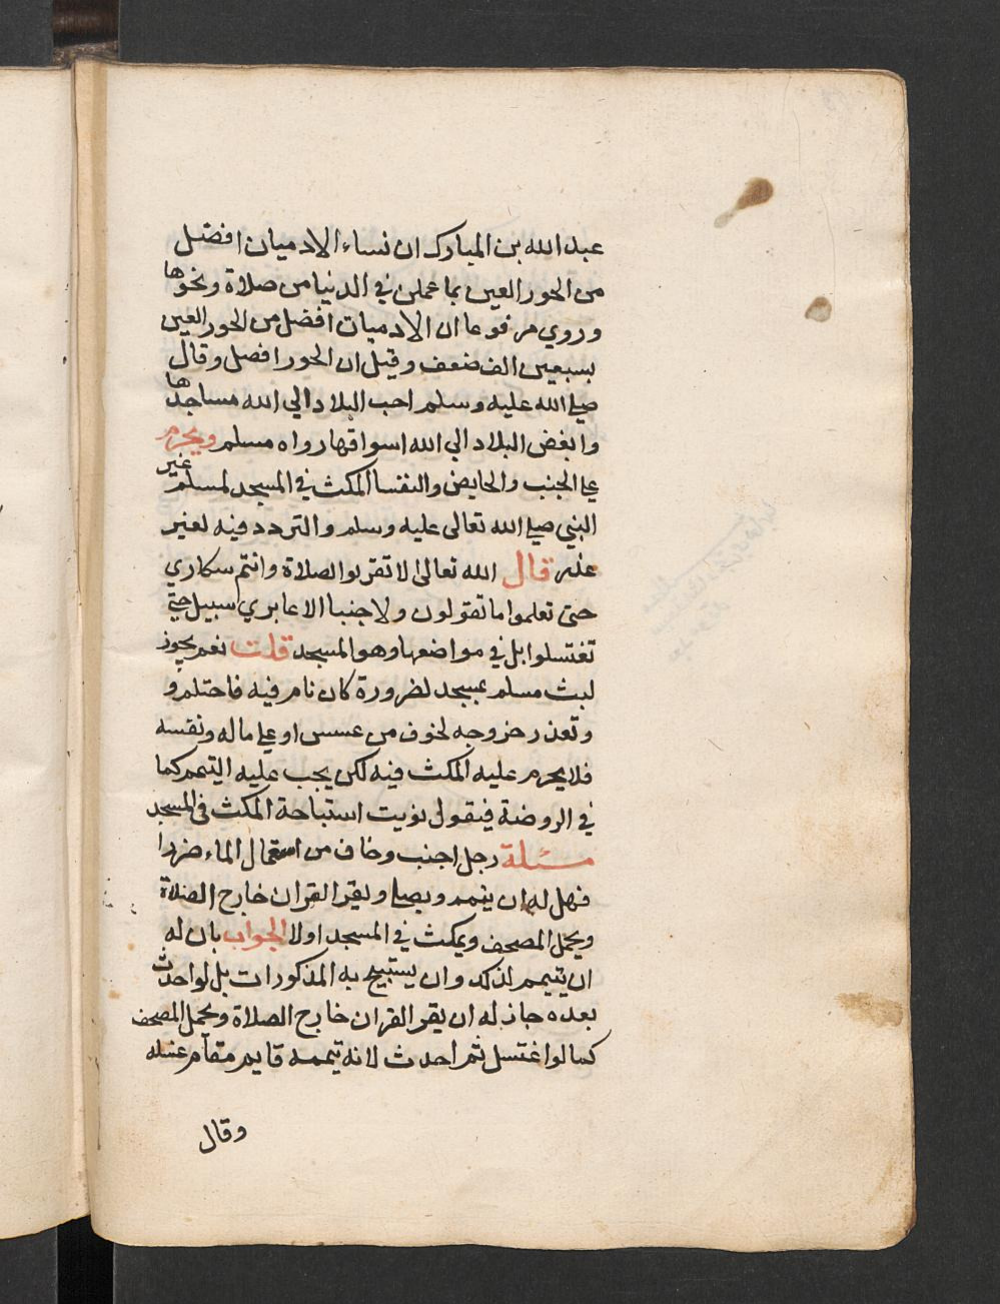 عبد الله بن المبارك ان نساء الادميان افضل
من الحور العين بما عملن في الدنيا من صلاة ونحوها
وروي مرفوعا ان الادميات افضل من الحور العين
بسبعين الف ضعف وقيل ان الحور افضل وقال
صلي الله عليه وسلم احب البلاد الي الله مساجدها
وابغض البلاد الي الله اسواقها رواه مسلم ويحرم
علي الجنب والحايض والنفسا المكث في المسجد لمسلم غير
النبي صلي الله تعالى عليه وسلم والتردد فيه لغير
عذر قال الله تعالى لا تقربوا الصلاة وانتم سكاري
حتى تعلموا ما تقولون ولا جنبا الا عابري سبيل حتي
تغتسلوا بل في مواضعها وهو المسجد قلت نعم يجوز
لبث مسلم بمسجد لضرورة كان نام فيه فاحتلم و
وتعذر خروجه لخوف من عسس او علي ماله ونفسه
فلا يحرم عليه المكث فيه لكن يجب عليه التيمم كما
في الروضة فيقول نويت استباحة المكث في المسجد
مسئلة رجل اجنب وخاف من استعمال الماء ضررا
فهل له ان يتيمم ويصلي ويقرا القران خارج الصلاة
ويحمل المصحف ويمكث في المسجد اولا الجواب بان له
ان يتيمم لذلك وان يستبيح به المذكورات بل لو احدث
بعده جاز له ان يقرا القران خارج الصلاة ويحمل المصحف
كما لو اغتسل ثم احدث لانه تيممه قايم مقام غسله
وقال